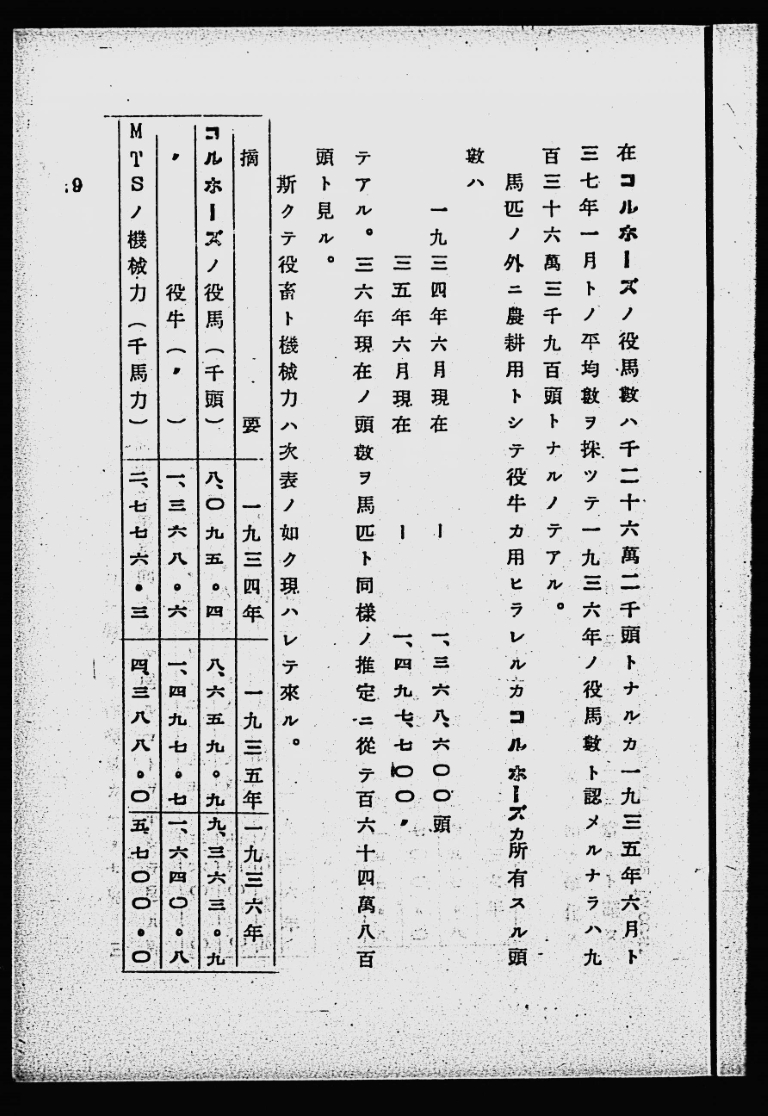 在コルホーズノ役馬數ハ千二十六萬二千頭トナルカ一九三五年六月ト
三七年一月トノ平均數ヲ採ツテ一九三六年ノ役馬數ト認メルナラハ九
百三十六萬三千九百頭トナルノテアル。
馬匹ノ外ニ農耕用トシテ役牛カ用ヒラレルカコルホーズカ所有スル頭
數ハ
一九三四年六月現在 ー 一、三六八、六〇〇頭
三五年六月現在 ー 一、四九七、七〇〇〃
テアル。三六年現在ノ頭數ヲ馬匹ト同様ノ推定ニ從テ百六十四萬八百
頭ト見ル。
斯クテ役畜ト機械力ハ次表ノ如ク現ハレテ來ル。
摘要 一九三四年 一九三五年 一九三六年
コルホーズノ役馬（千頭） 八、〇九五。四 八、六五九。九 九、三六三。九
〃 役牛（〃） 一、三六八。六 一、四九七。七 一、六四〇。八
MTSノ機械力（千馬力） 二、七七六。三 四、三八八。〇 五、七〇〇。〇
9